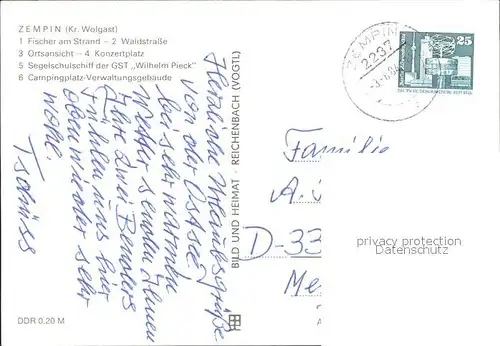 ZEMPIN (Kr. Wolgast)
1 Fischer am Strand – 2 Waldstraße
3 Ortsansicht – 4 Konzertplatz
5 Segelschulschiff der GST „Wilhelm Pieck"
6 Campingplatz-Verwaltungsgebäude
Herzliche Urlaubsgrüße
von der Ostsee
bei sehr warmen
Wetter senden Ihnen
Ihre zwei
fühlen uns hier
wieder sehr
wohl.
Tschüss
DDR 0,20 M
BILD UND HEIMAT · REICHENBACH (VOGTL)
ZEMPIN
2237
25
Familie
A. v
D-33
Me
privacy protection
Datenschutz